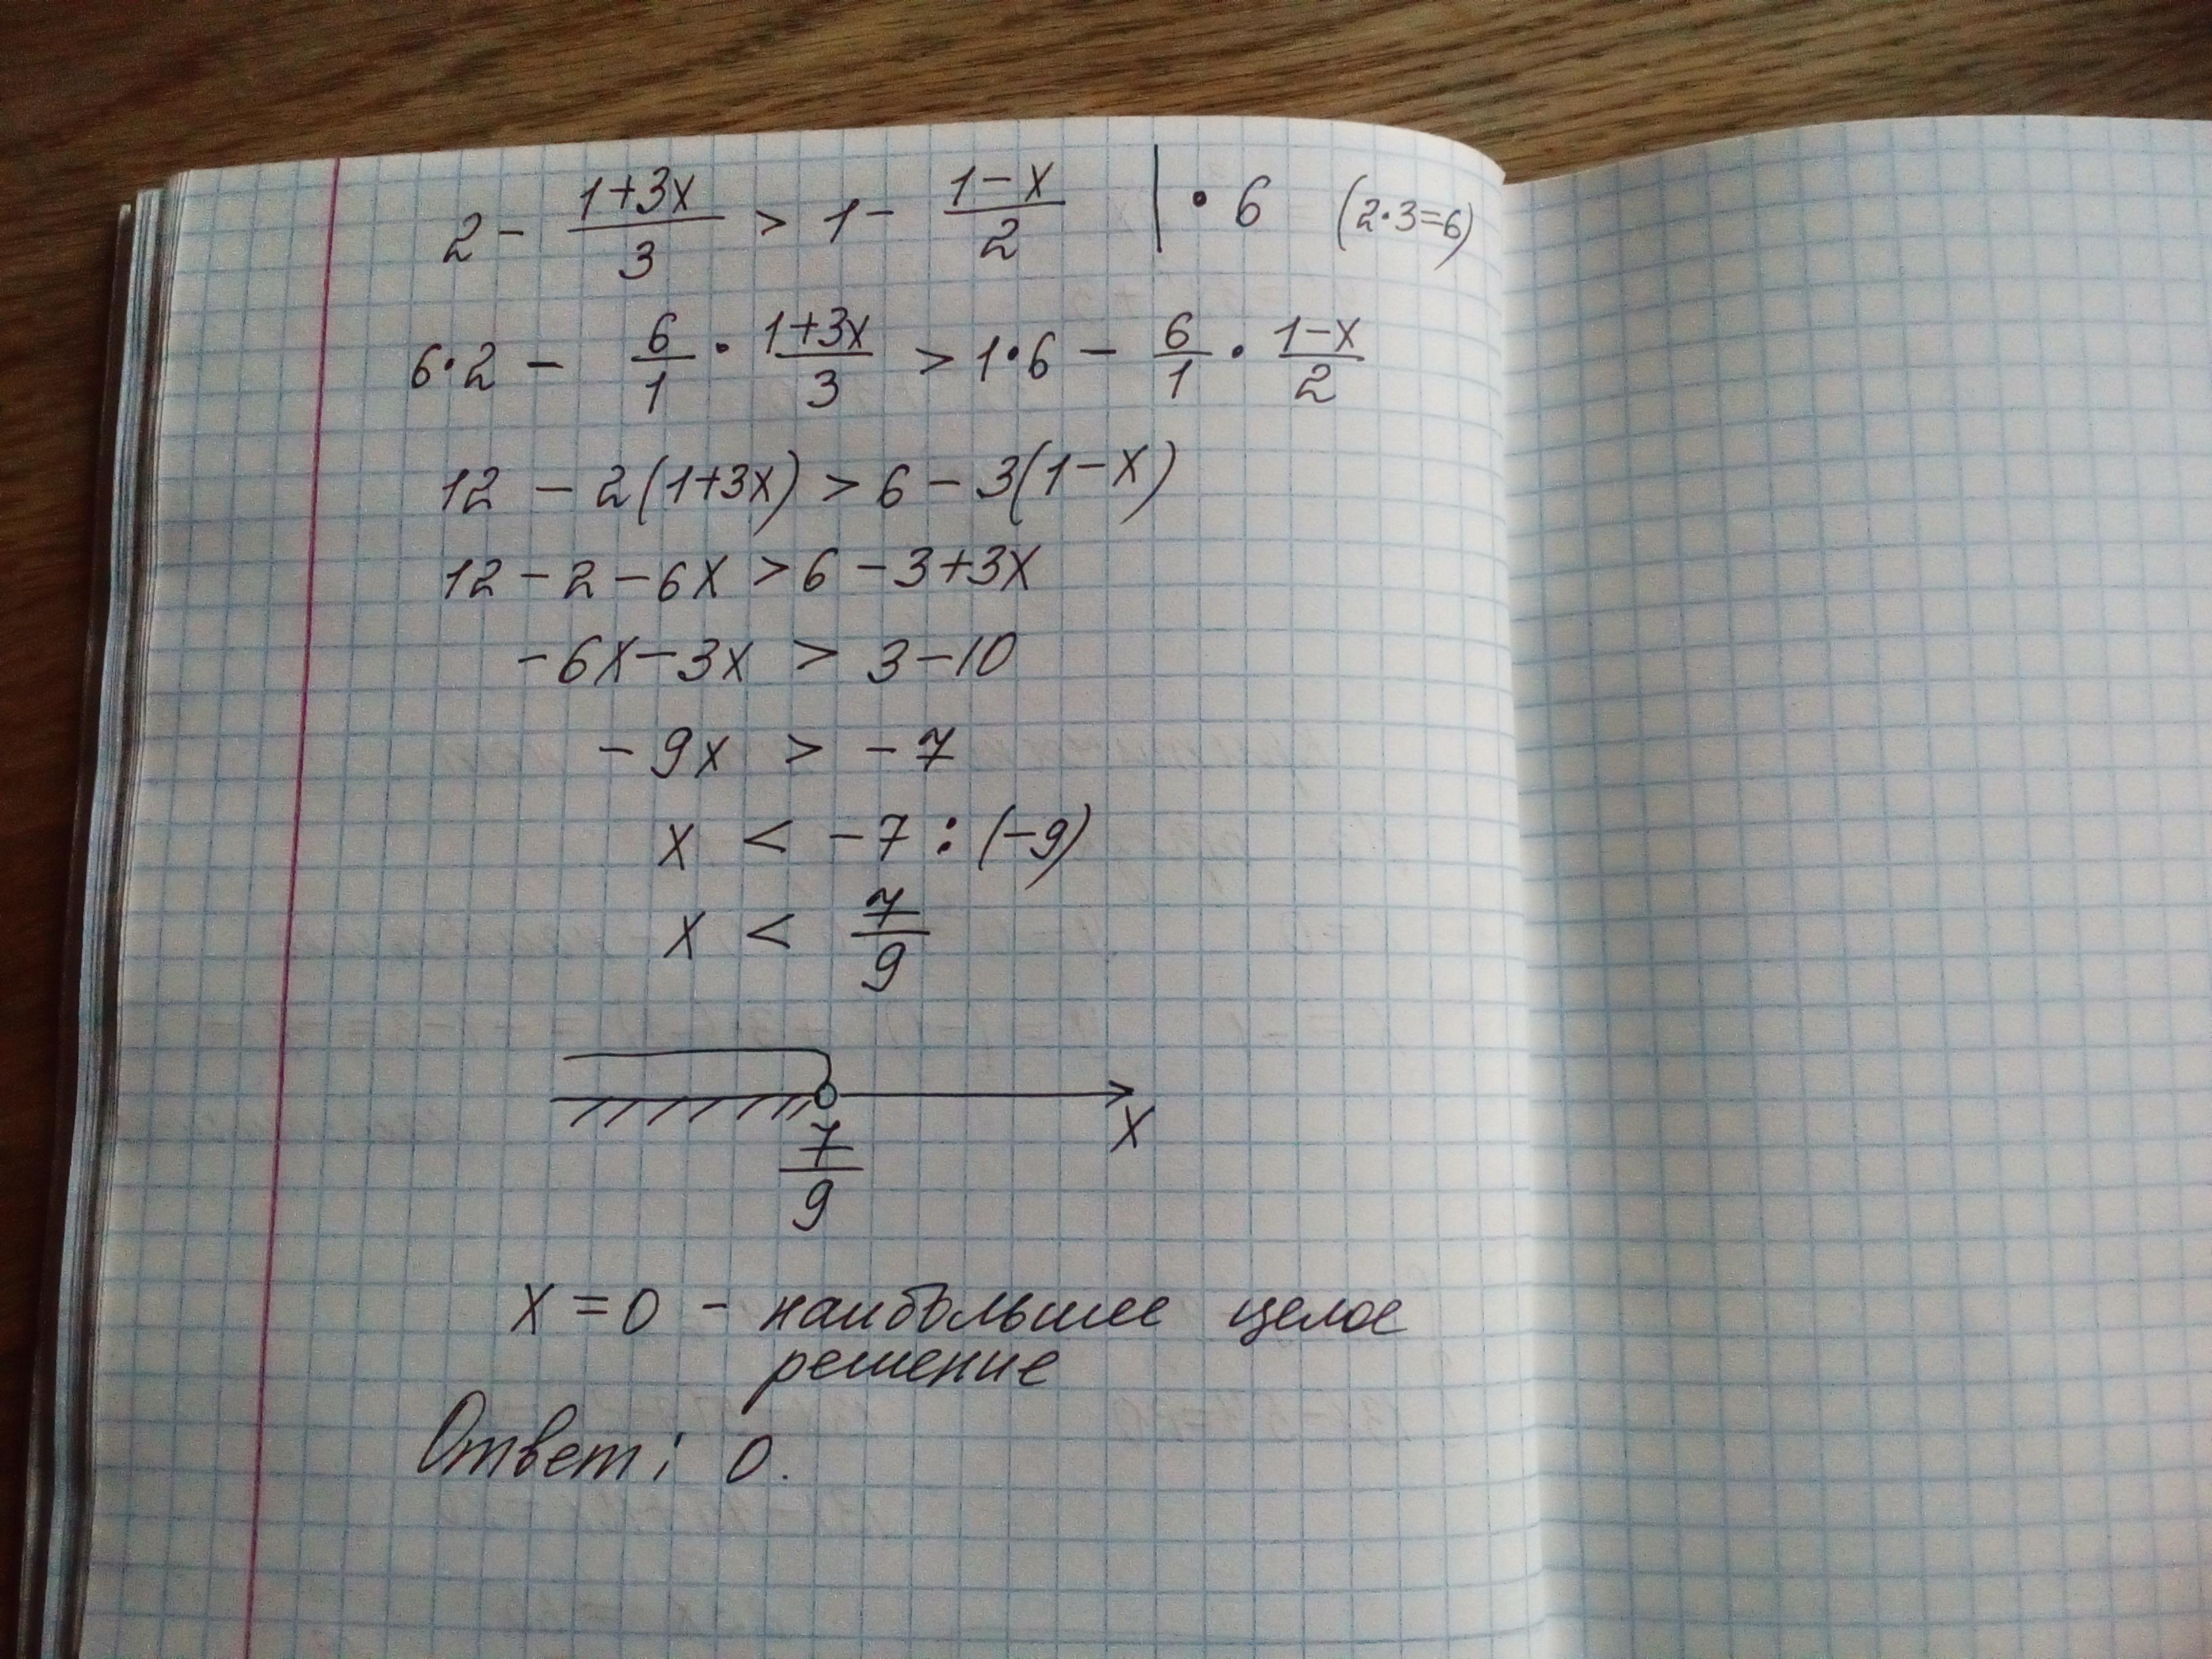 2 - (1+3x)/3 > 1 - (1-x)/2 | • 6 (2•3=6)
6•2 - 6/1 • (1+3x)/3 > 1•6 - 6/1 • (1-x)/2
12 - 2(1+3x) > 6 - 3(1-x)
12 - 2 - 6x > 6 - 3 + 3x
-6x - 3x > 3 - 10
-9x > -7
x < -7 : (-9)
x < 7/9
x
7/9
x = 0 - наибольшее целое
решение
Ответ: 0.